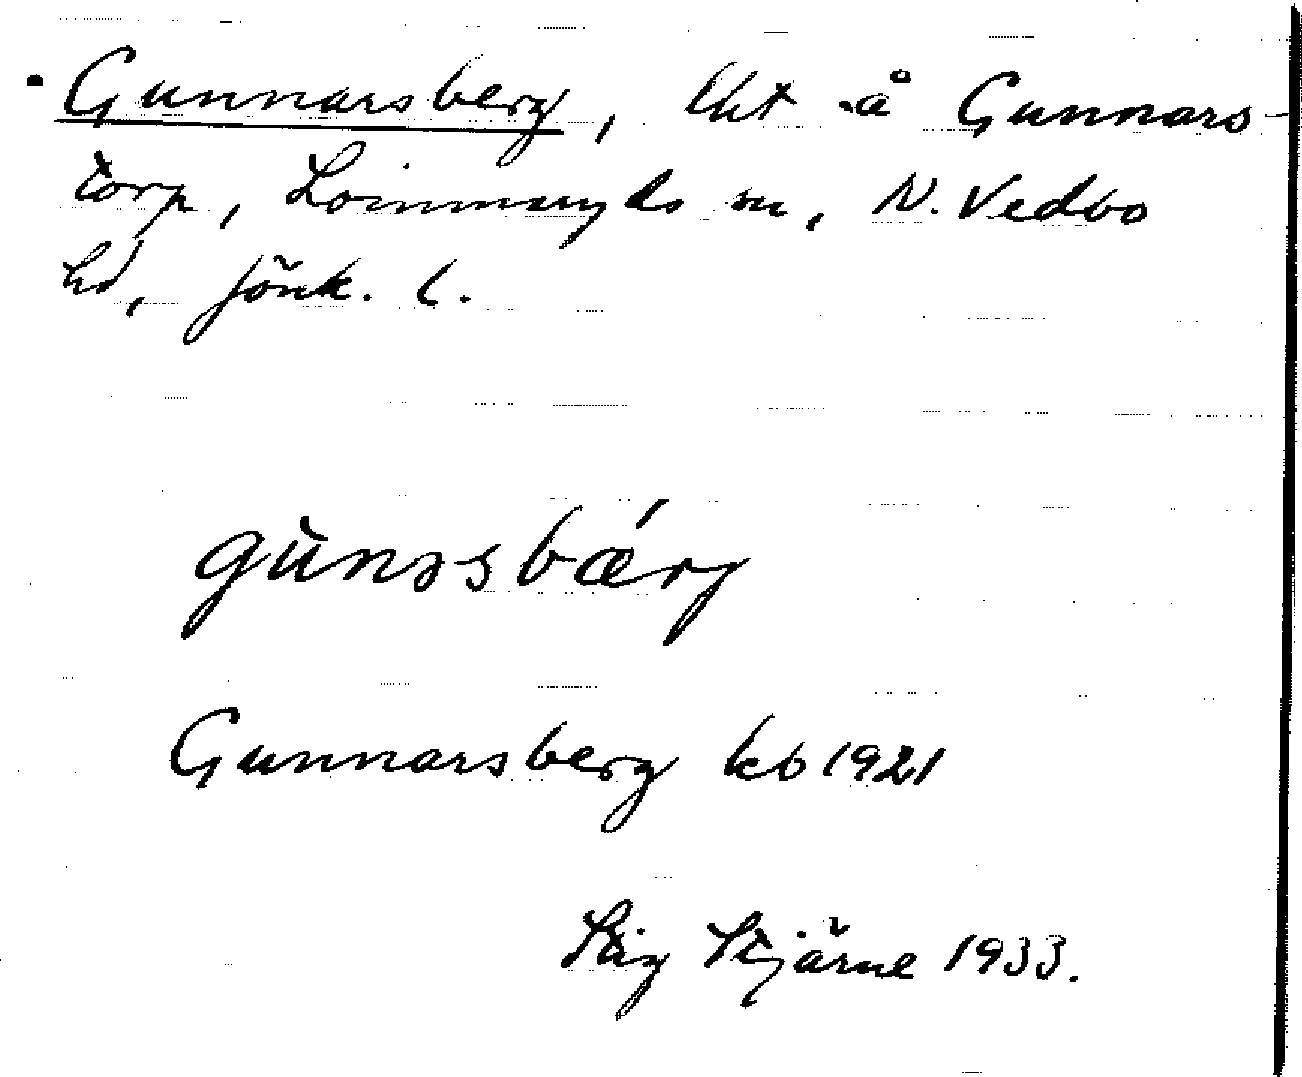 Gunnarsberg, lht å Gunnars-
torp, Lommaryds sn, N. Vedbo
hd, Jönk. l.
gùnəsbǽrj
Gunnarsberg kb 1921
Stig Stjärne 1933.